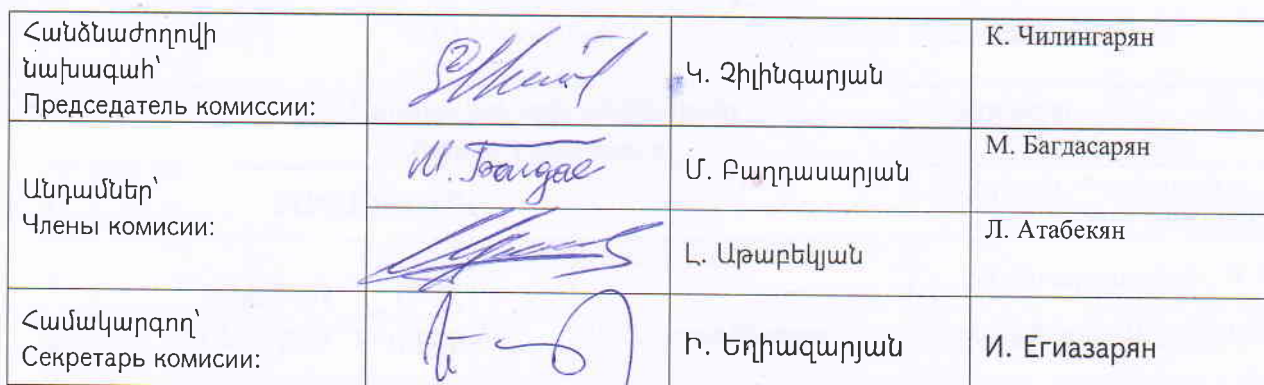 Հանձնաժողովի
նախագահ՝
Председатель комиссии:
Կ. Չիլինգարյան
К. Чилингарян
Անդամներ՝
Члены комисии:
М. Багдас
Մ. Բաղդասարյան
М. Багдасарян
Լ. Աթաբեկյան
Л. Атабекян
Համակարգող՝
Секретарь комисии:
Ի. Եղիազարյան
И. Егиазарян